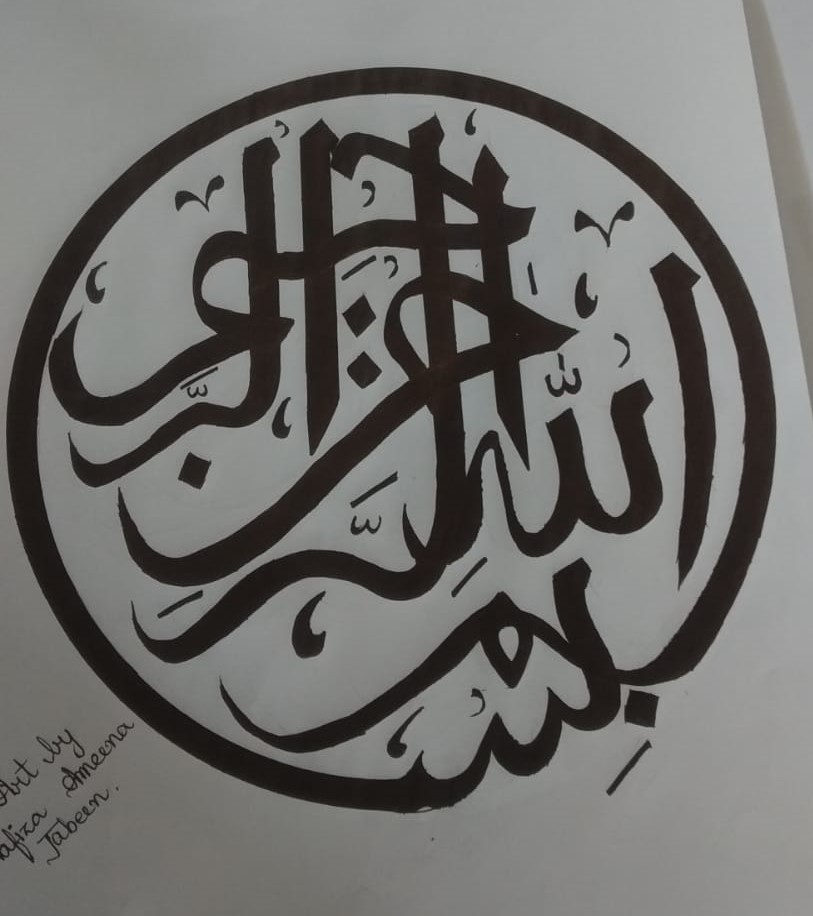 بسم الله الرحمن الرحيم
Art by
afiza Ameena
Jabeen.